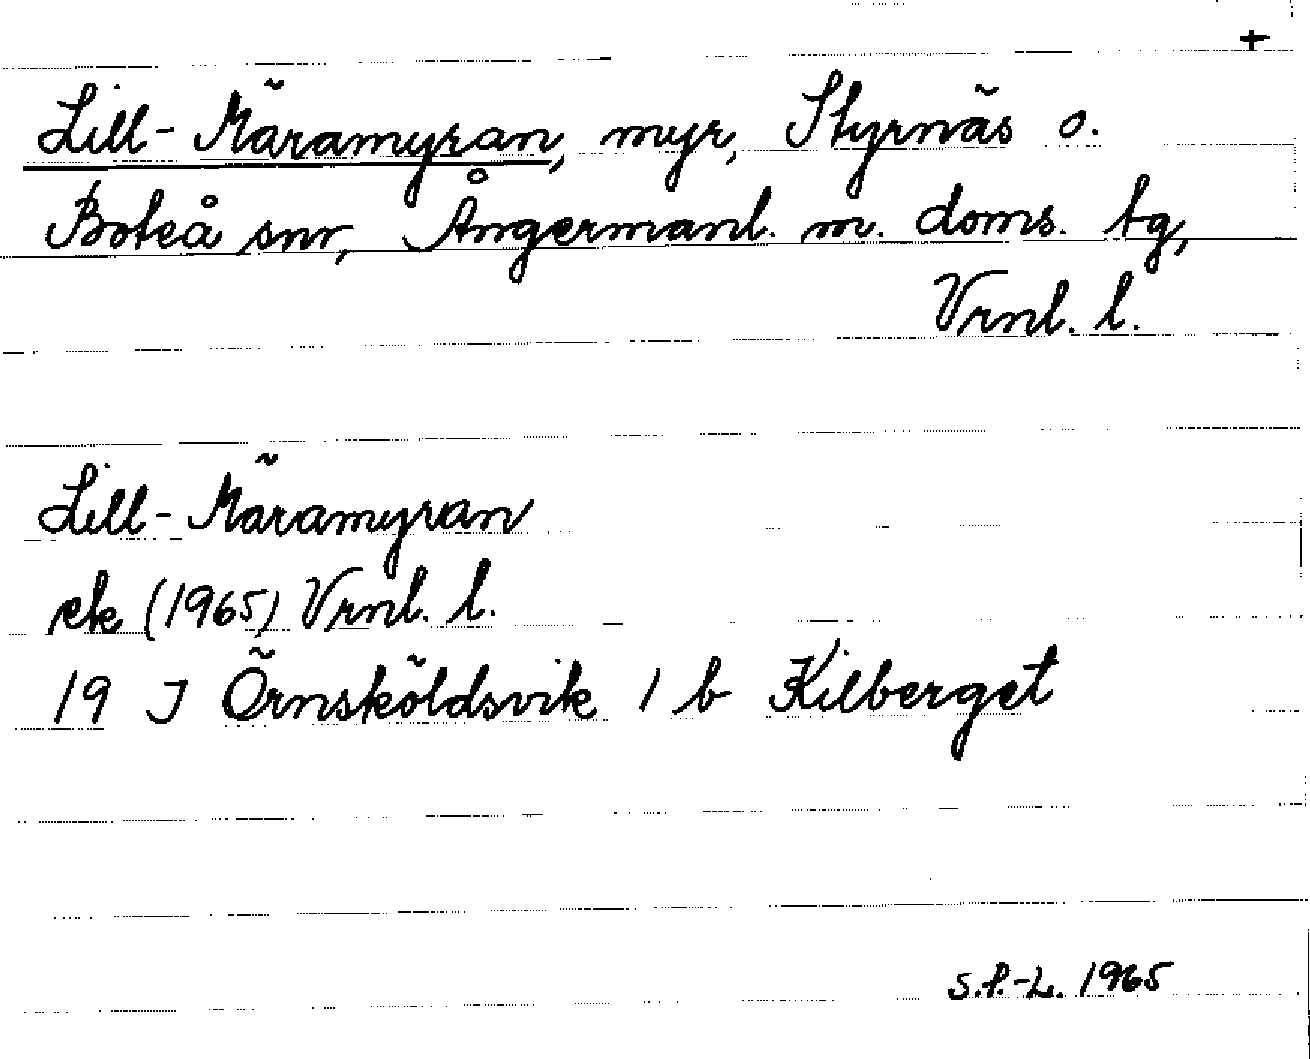 +
Lill-Märamyran, myr, Styrnäs o.
Boteå snr, Ångermanl. m. doms. tg,
Vrnl. l.
Lill-Märamyran
ek (1965) Vrnl. l.
19 J Örnsköldsvik 1 b Kilberget
S.P.-L. 1965